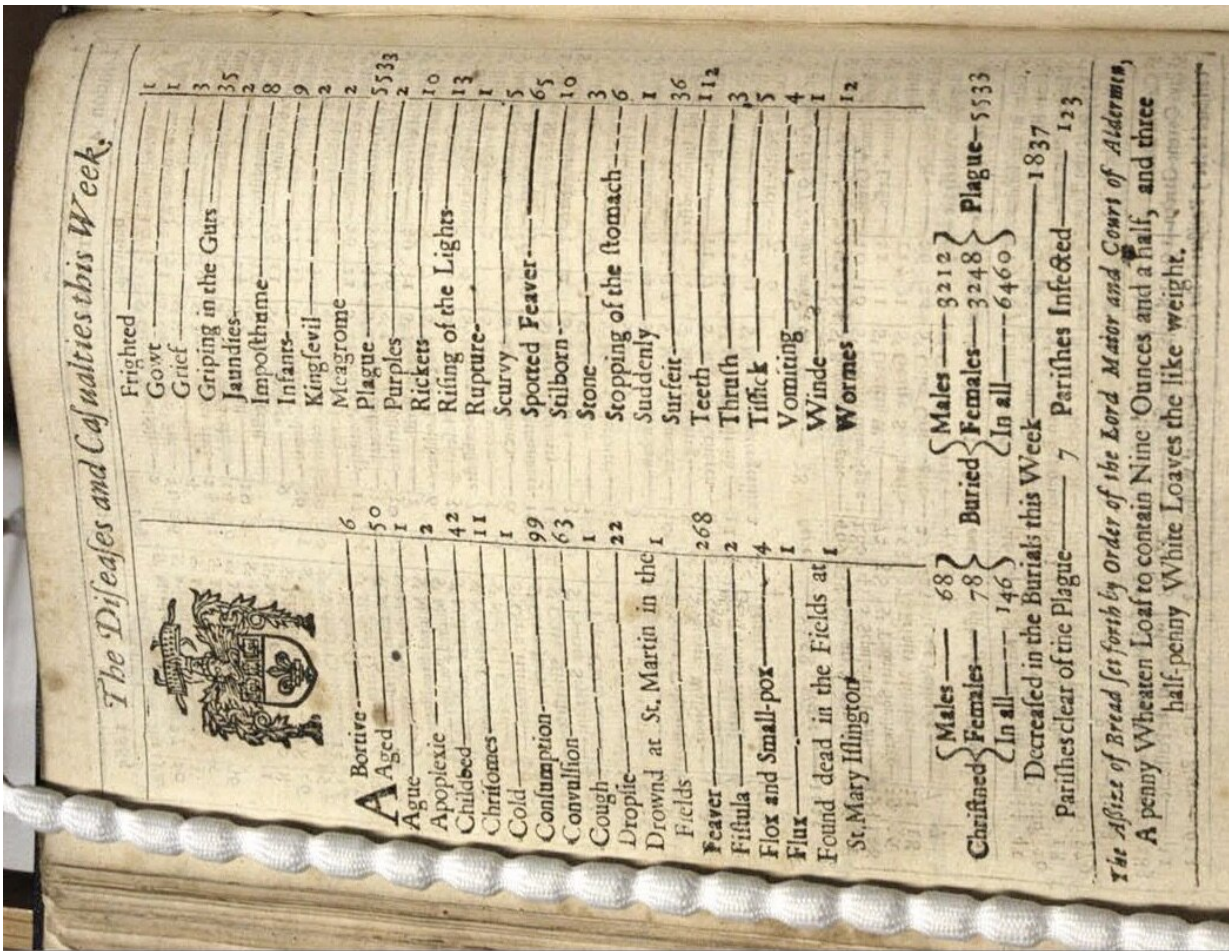 The Diſeaſes and Caſualties this Week.
ABortive 6
Aged 50
Ague 1
Apoplexie 2
Childbed 42
Chriſomes 11
Cold 1
Conſumption 99
Convulſion 63
Cough 1
Dropſie 22
Drownd at St. Martin in the
Fields 1
Feaver 268
Fiſtula 2
Flox and Small-pox 4
Flux 1
Found dead in the Fields at
St. Mary Iſlington 1
Frighted 1
Gowt 1
Grief 3
Griping in the Guts 35
Jaundies 2
Impoſthume 8
Infants 9
Kingſevil 2
Meagrome 2
Plague 5533
Purples 2
Rickets 10
Riſing of the Lights 13
Rupture 1
Scurvy 5
Spotted Feaver 65
Stilborn 10
Stone 3
Stopping of the ſtomach 6
Suddenly 1
Surfeit 36
Teeth 112
Thruſh 3
Tiſſick 5
Vomiting 4
Winde 1
Wormes 12
Chriſtned { Males 68 Females 78 In all 146 } Buried { Males 3212 Females 3248 In all 6460 } Plague 5533
Decreaſed in the Burials this Week 1837
Pariſhes clear of the Plague 7 Pariſhes Infected 123
The Aſſize of Bread ſet forth by Order of the Lord Maior and Court of Aldermen,
A penny Wheaten Loaf to contain Nine Ounces and a half, and three
half-penny White Loaves the like weight.